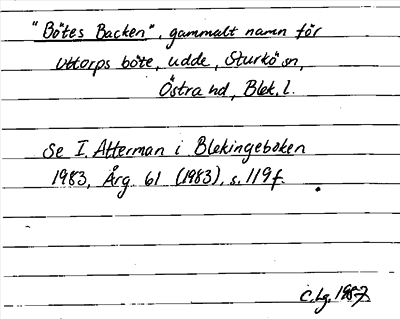 "Bötes Backen", gammalt namn för
Uttorps böte, udde, Sturkö sn,
Östra hd, Blek. l.
Se I. Atterman i Blekingeboken
1983, Årg. 61 (1983), s. 119 f.
C. Lg. 1987